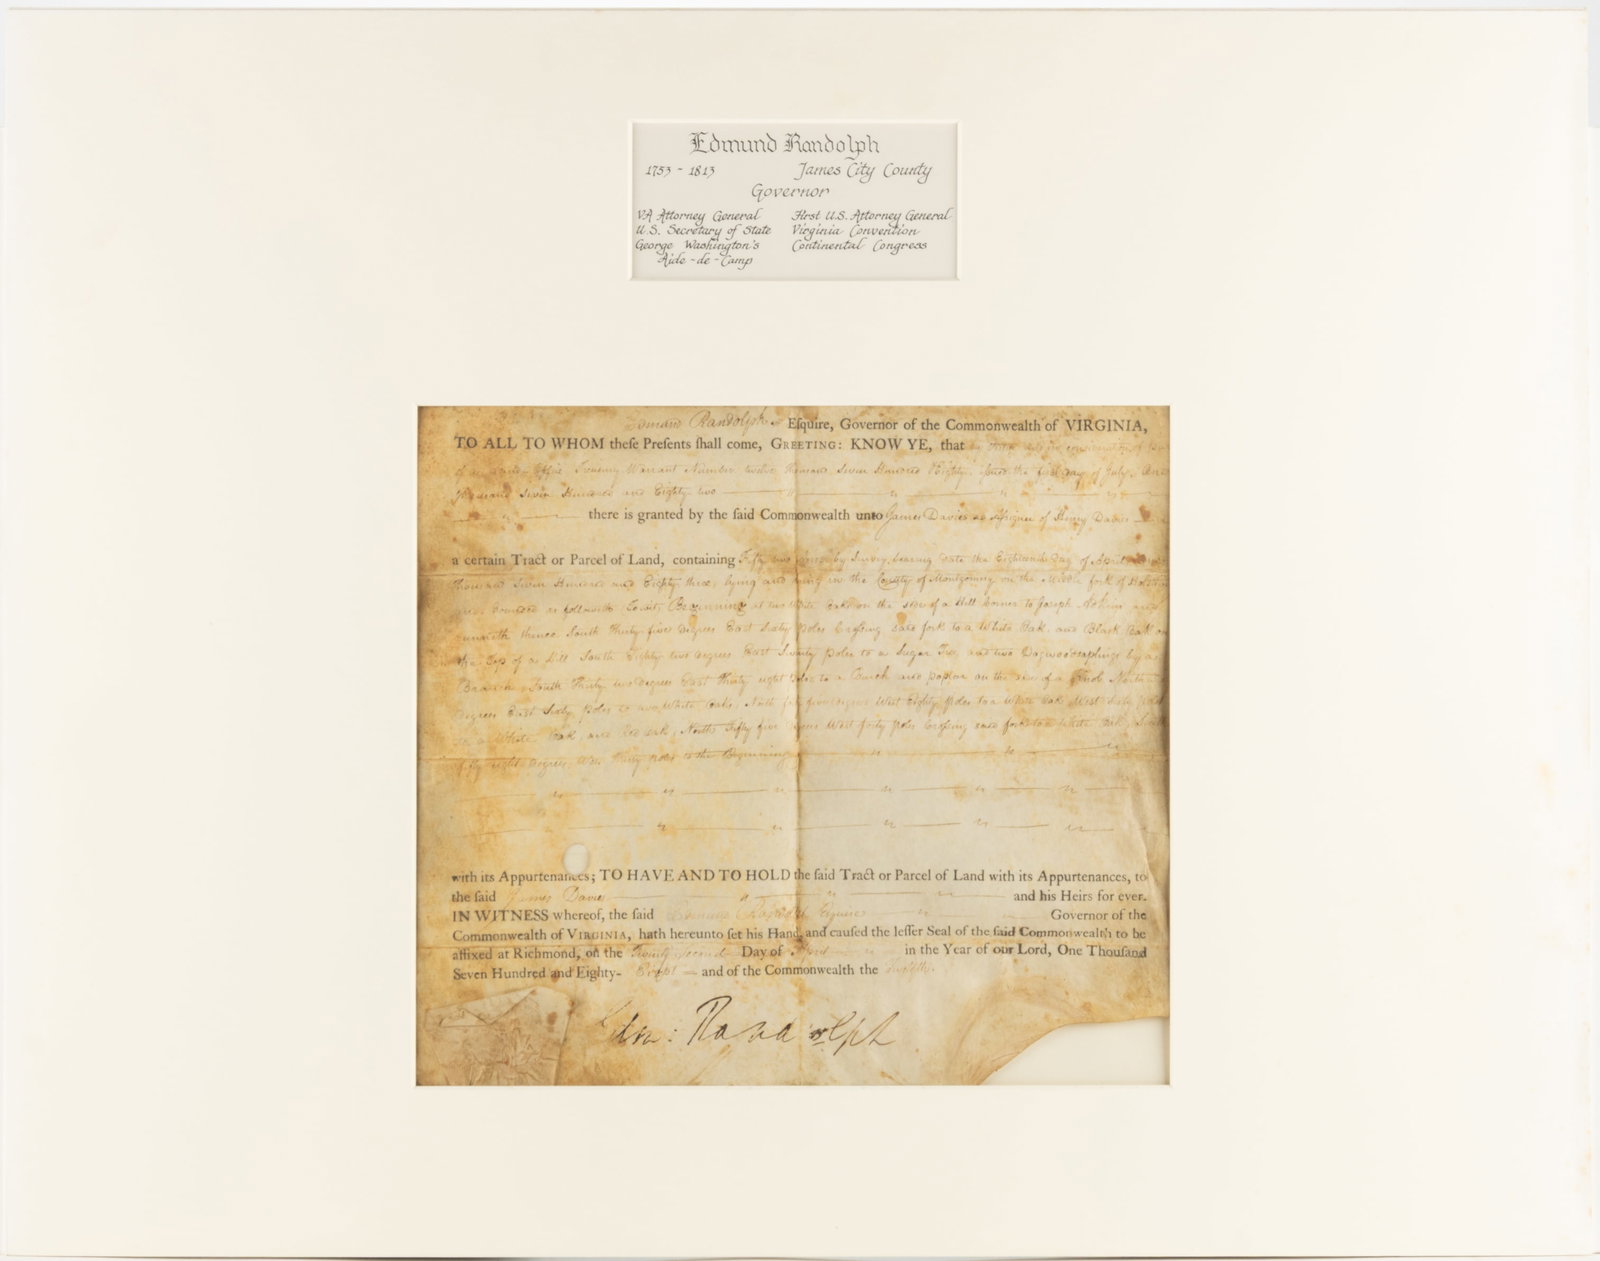 Edmund Randolph
1753 - 1813 James City County
Governor
VA Attorney General First U.S. Attorney General
U.S. Secretary of State Virginia Convention
George Washington's Continental Congress
Aide-de-Camp
Edmund Randolph Eſquire, Governor of the Commonwealth of VIRGINIA,
TO ALL TO WHOM theſe Preſents ſhall come, GREETING: KNOW YE, that
Office Treasury Warrant Number twelve thousand Seven Hundred & Eighty issued the first day of July
thousand Seven Hundred and Eighty two
there is granted by the ſaid Commonwealth unto James Davies assignee of Henry Davies
a certain Tract or Parcel of Land, containing Fifty two acres by Survey bearing date the Eighteenth Day of April
thousand Seven Hundred and Eighty three, lying and being in the County of Montgomery on the Middle fork of
bounded as followeth, Towit, Beginning at two White Oaks on the side of a Hill Corner to Joseph
runneth thence South Thirty five degrees East Sixty poles Crossing said fork to a White Oak, and Black Oak on
the Top of a Hill South Eighty two degrees East Twenty poles to a Sugar Tree and two Dogwood saplings by a
Branch, South Thirty two degrees East Thirty eight poles to a and poplar on the side of a Knob North
degrees East Sixty poles to two White Oaks, North five degrees West Eighty poles to a White Oak West Sixty poles
to a White Oak and Red oak, North Fifty five degrees West forty poles Crossing said fork to a White Oak, South
fifty eight degrees West Thirty poles to the Beginning
with its Appurtenances; TO HAVE AND TO HOLD the ſaid Tract or Parcel of Land with its Appurtenances, to
the ſaid James Davies and his Heirs for ever.
IN WITNESS whereof, the ſaid Edmund Randolph Esquire Governor of the
Commonwealth of VIRGINIA, hath hereunto ſet his Hand, and cauſed the leſſer Seal of the ſaid Commonwealth to be
affixed at Richmond, on the Twenty Second Day of April in the Year of our Lord, One Thouſand
Seven Hundred and Eighty- Eight and of the Commonwealth the Twelfth.
Edm: Randolph